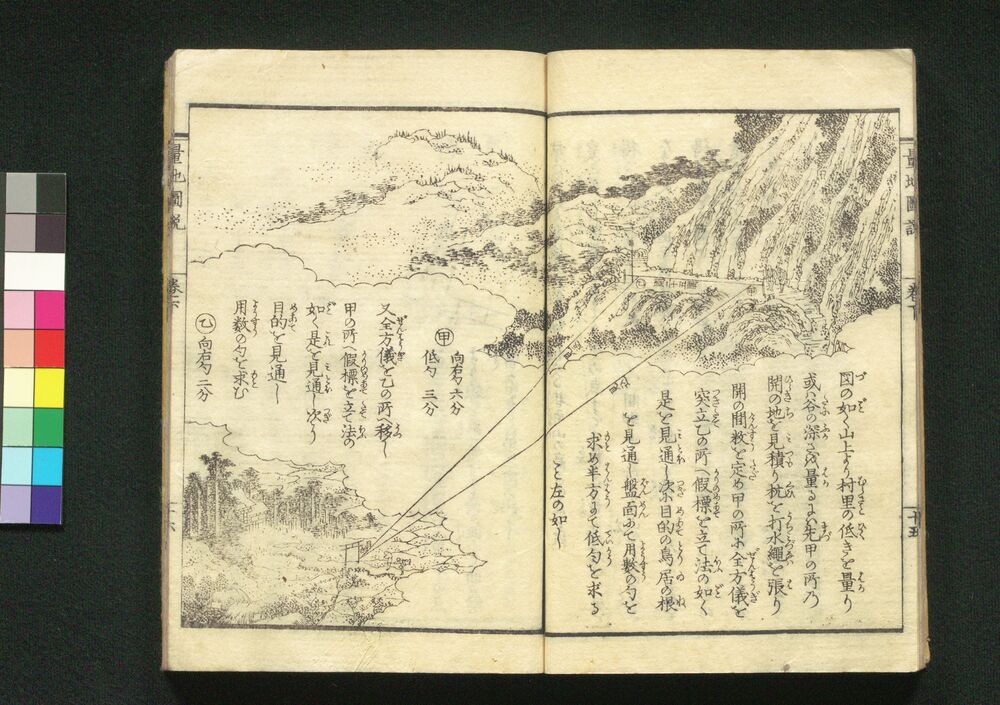 量地圖説
十五
図の如く山上より村里の低きを量り
或ハ谷の深さを量るにハ先甲の所乃
開の地を見積り杭を打水繩を張り
開の間数を定め甲の所に全方儀を
突立乙の所へ假標を立て法の如く
是を見通し次に目的の鳥居の根
を見通し盤面にて用数の勺を
求め半方にて低勺を求る
こと左の如し
甲 向右勺六分
低勺 三分
又全方儀を乙の所へ移し
甲の所へ假標を立て法の
如く是を見通し次に
目的を見通し
用数の勺を求む
乙 向右勺二分
量地圖説